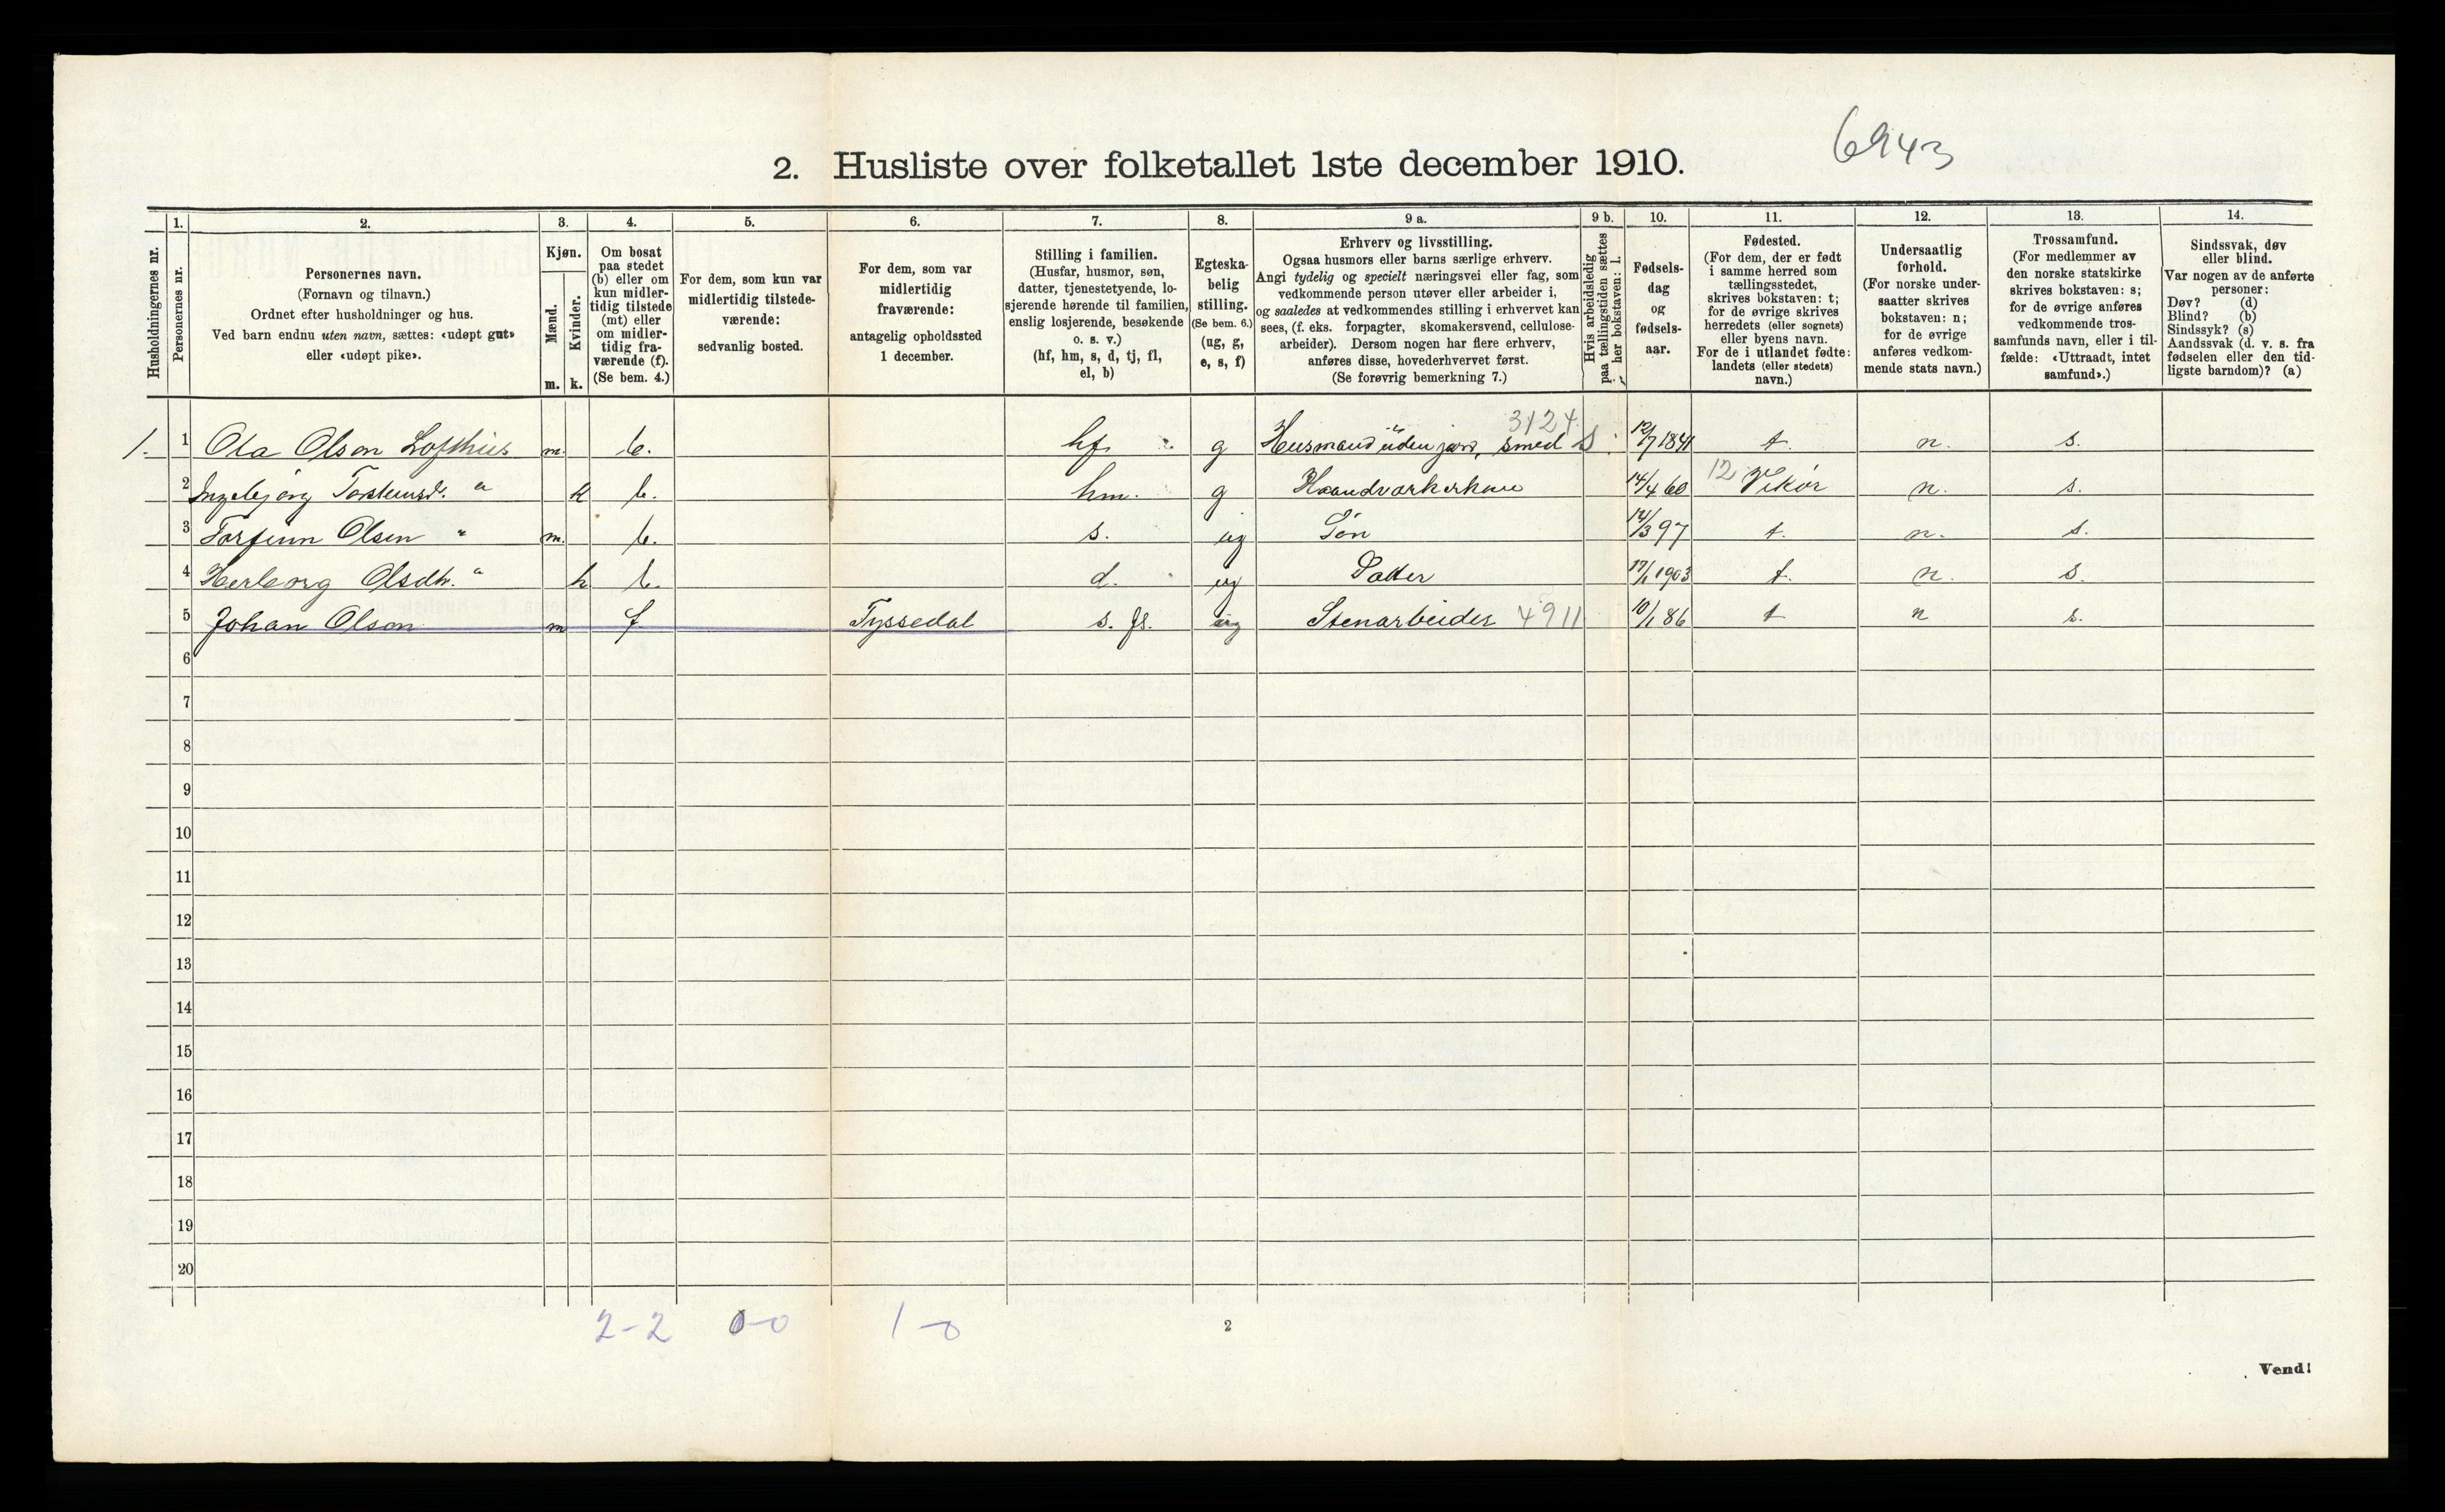 6943
2. Husliste over folketallet 1ste december 1910.
Husholdningernes nr.
1.
Personernes nr.
2.
Personernes navn.
(Fornavn og tilnavn.)
Ordnet efter husholdninger og hus.
Ved barn endnu uten navn, sættes: «udøpt gut»
eller «udøpt pike».
3.
Kjøn.
Mænd.
m.
Kvinder.
k.
4.
Om bosat
paa stedet
(b) eller om
kun midler-
tidig tilstede
(mt) eller
om midler-
tidig fra-
værende (f).
(Se bem. 4.)
5.
For dem, som kun var
midlertidig tilstede-
værende:
sedvanlig bosted.
6.
For dem, som var
midlertidig
fraværende:
antagelig opholdssted
1 december.
7.
Stilling i familien.
(Husfar, husmor, søn,
datter, tjenestetyende, lo-
sjerende hørende til familien,
enslig losjerende, besøkende
o. s. v.)
(hf, hm, s, d, tj, fl,
el, b)
8.
Egteska-
belig
stilling.
(Se bem. 6.)
(ug, g,
e, s, f)
9 a.
Erhverv og livsstilling.
Ogsaa husmors eller barns særlige erhverv.
Angi tydelig og specielt næringsvei eller fag, som
vedkommende person utøver eller arbeider i,
og saaledes at vedkommendes stilling i erhvervet kan
sees, (f. eks. forpagter, skomakersvend, cellulose-
arbeider). Dersom nogen har flere erhverv,
anføres disse, hovederhvervet først.
(Se forøvrig bemerkning 7.)
9 b.
Hvis arbeidsledig
paa tællingstiden sættes
her bokstaven: l.
10.
Fødsels-
dag
og
fødsels-
aar.
11.
Fødested.
(For dem, der er født
i samme herred som
tællingsstedet,
skrives bokstaven: t;
for de øvrige skrives
herredets (eller sognets)
eller byens navn.
For de i utlandet fødte:
landets (eller stedets)
navn.)
12.
Undersaatlig
forhold.
(For norske under-
saatter skrives
bokstaven: n;
for de øvrige
anføres vedkom-
mende stats navn.)
13.
Trossamfund.
(For medlemmer av
den norske statskirke
skrives bokstaven: s;
for de øvrige anføres
vedkommende tros-
samfunds navn, eller i til-
fælde: «Uttraadt, intet
samfund».)
14.
Sindssvak, døv
eller blind.
Var nogen av de anførte
personer:
Døv? (d)
Blind? (b)
Sindssyk? (s)
Aandssvak (d. v. s. fra
fødselen eller den tid-
ligste barndom)? (a)
3124
1. 1 Ola Olson Lofthus m. b. hf. g Husmand uden jord, smed S. 12/7 1841 t. n. s.
2 Ingebjørg Torsteinsd. " k b. hm. g Haandværkerkone 14/4 60 12 Vikör n. s.
3 Torfinn Olsen " m. b. s. ug Søn 14/3 97 t. n. s.
4 Herborg Olsdtr. " k b. d. ug Datter 17/1 1903 t. n. s.
5 Johan Olson m f Tyssedal s. fl. ug Stenarbeider 4911 10/1 86 t n s.
6
7
8
9
10
11
12
13
14
15
16
17
18
19
20
2-2 0-0 1-0
2
Vend!